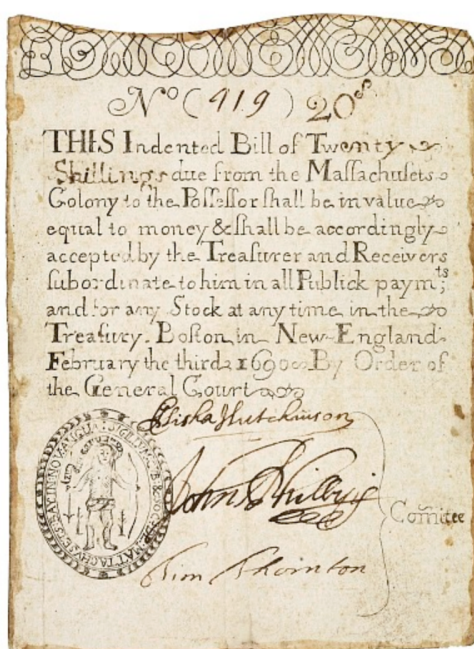 No (919) 20s
THIS Indented Bill of Twenty
Shillings due from the Maſſachuſets
Colony to the Poſſeſſor ſhall be in value
equal to money & ſhall be accordingly
accepted by the Treaſurer and Receivers
ſubordinate to him in all Publick paymts;
and for any Stock at any time in the
Treaſury. Boſton in New-England
February the third 1690. By Order of
the General Court
Elisha Hutchinson
John Phillips
Tim Thornton
Comitee